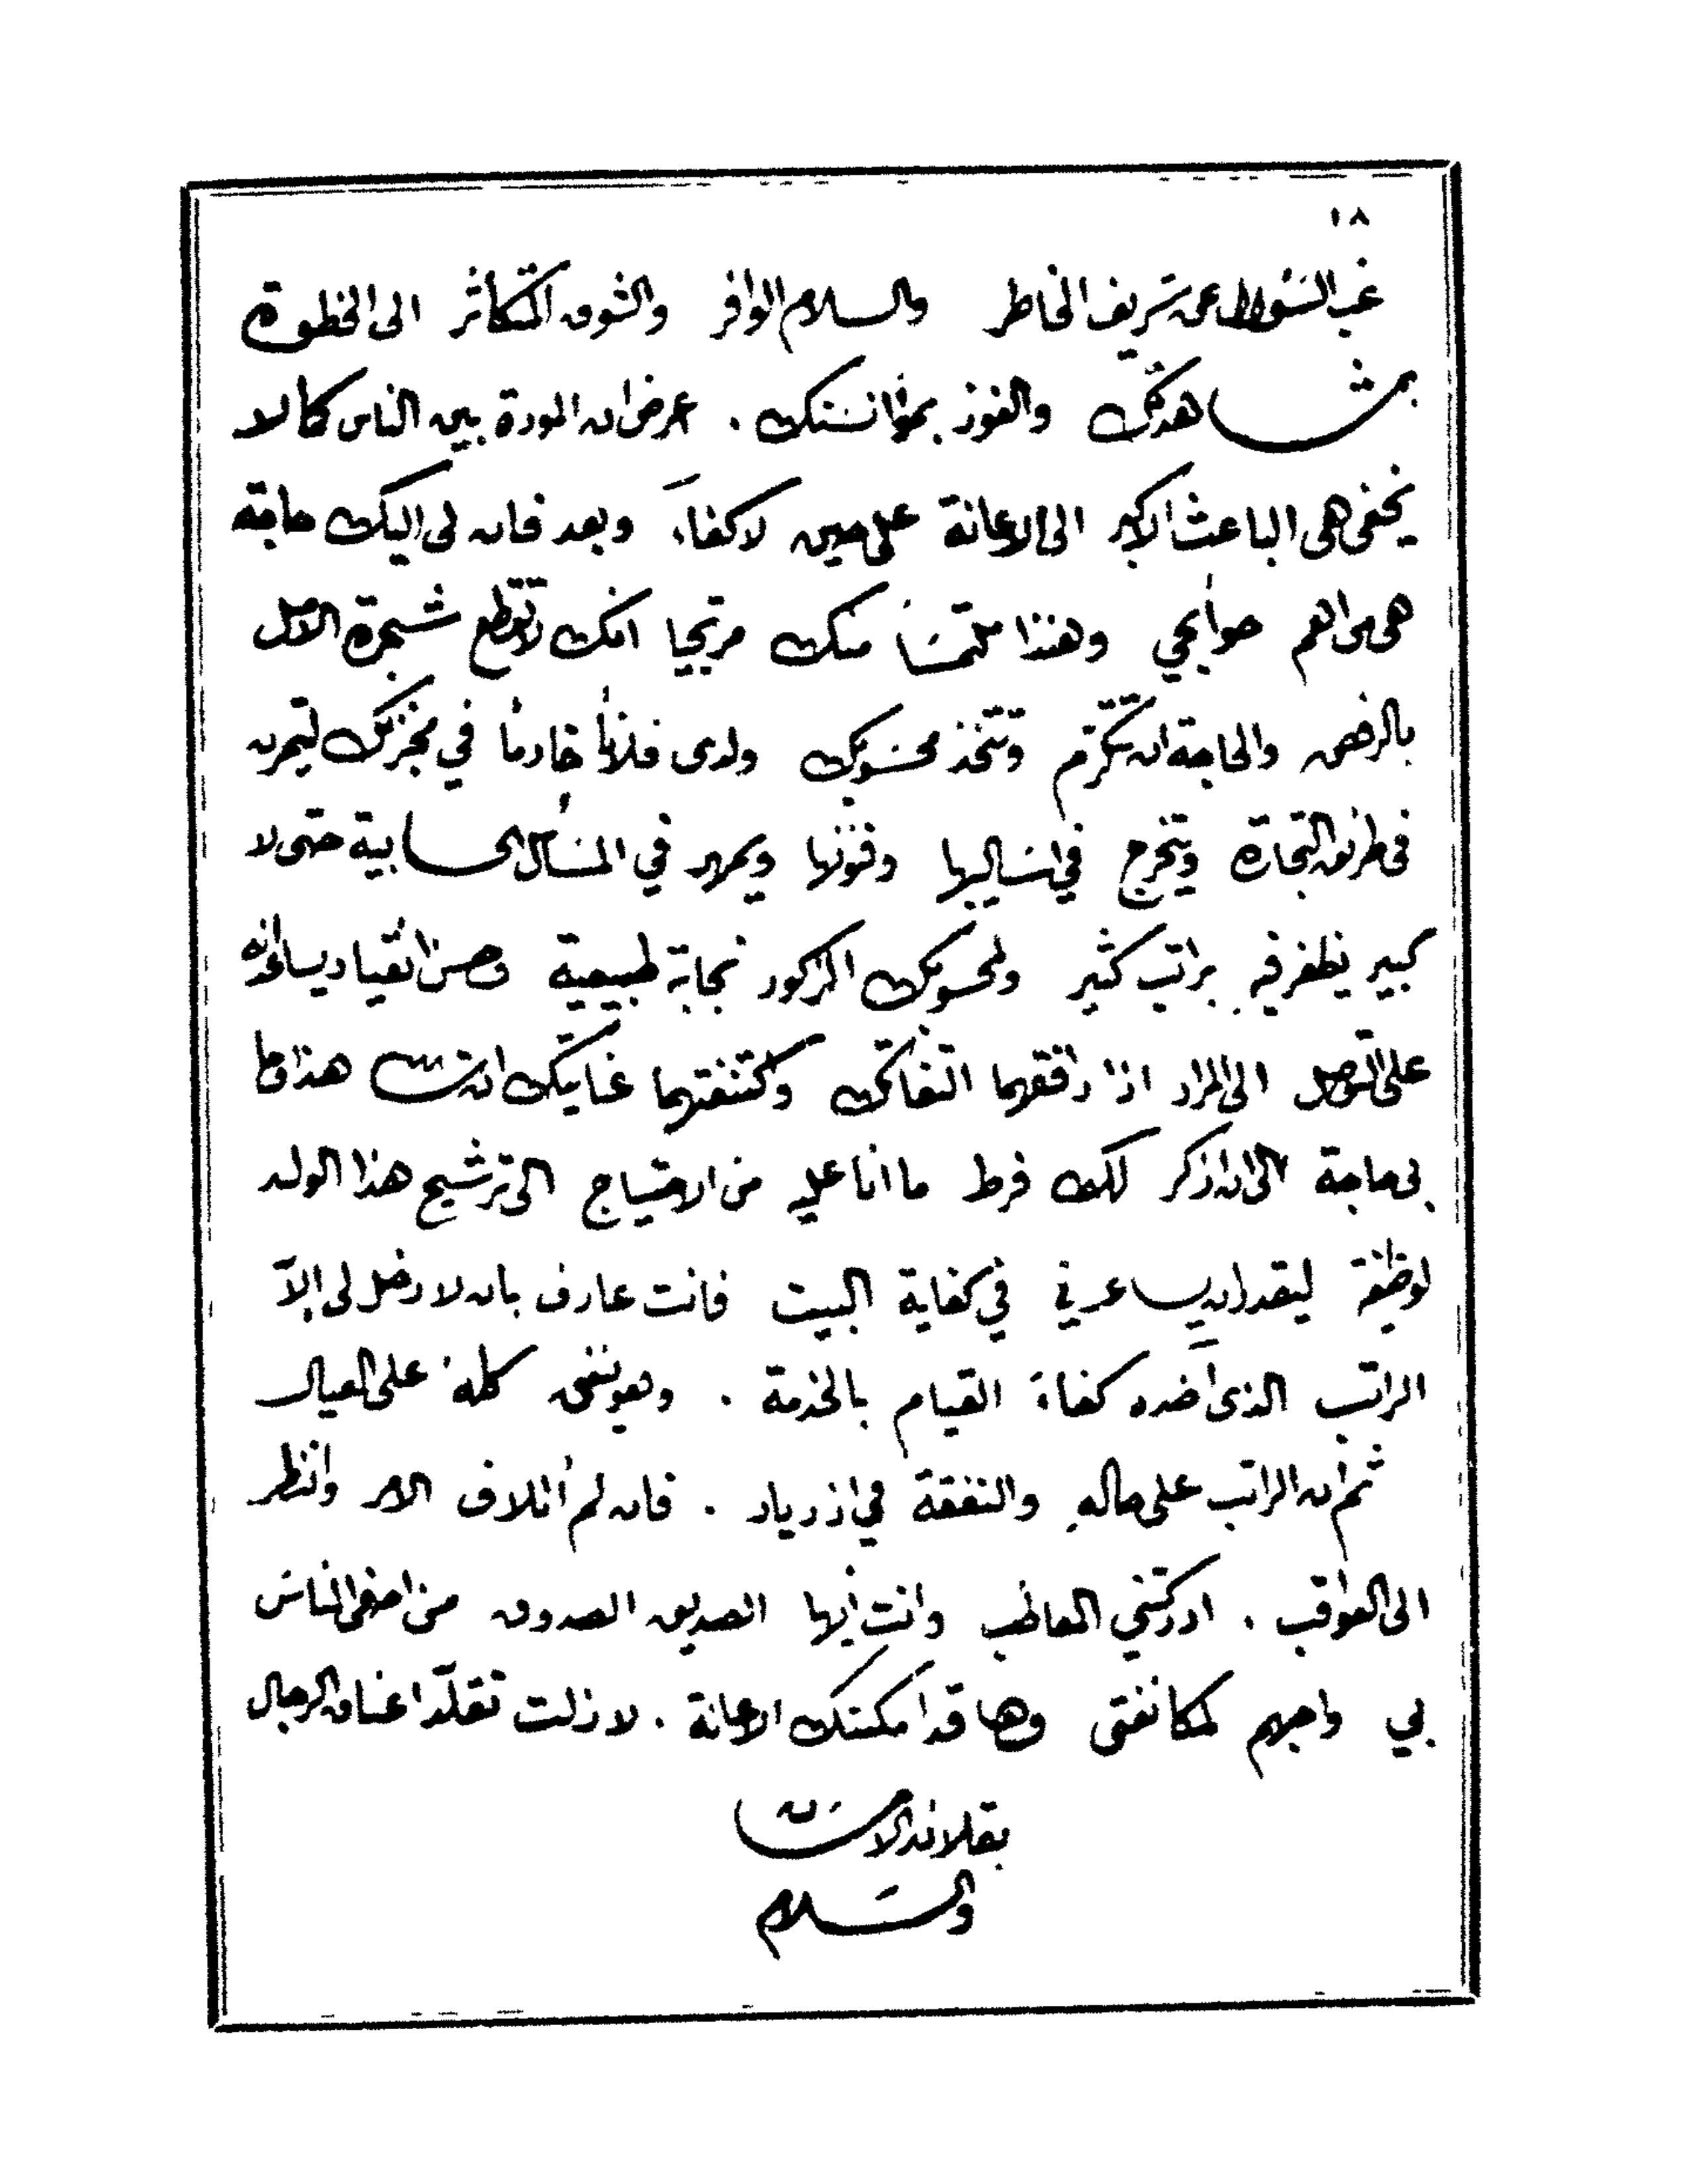 ١٨
غب السؤال عن شريف الخاطر والسلام الوافر والشوق المتكاثر الى الحظوة
بمشاهدتك والفوز بمؤانستك . اعرض ان المودة بين الناس كما لا
يخفى هي الباعث الاكبر الى الاعانة على حين لا كفاء وبعد فان لي اليك حاجة
هي من اهم حوائجي وهنذا ملتمسًا منك مرتجيا انك لا تقطع شجرة الامل
بالرفض والحاجة ان تتكرّم وتتخذ محسوبك ولدى فلانًا خادمًا في مخزنك ليتمرن
في طرق التجارة ويتخرج في اساليبها وفنونها ويمهر في المسائل الحسابية حتى لا
كبير يظفر فيه براتب كثير ولمحسوبك المذكور نجابة طبيعية وحسن انقياد يساعدانه
على التوصل الى المراد اذا رافقهما التفاتك واكتنفتهما عنايتك انت هذا وما
بي حاجة الى ان اذكر لك فرط ما انا عليه من الاحتياج الى ترشيح هذا الولد
لوظيفة ليقدر ان يساعدني في كفاية البيت فانت عارف بان لا دخل لي إلاّ
الراتب الذي آخذه كفاءَ القيام بالخدمة . وهو ينفق كله على العيال
ثم ان الراتب على حالهِ والنفقة في ازدياد . فان لم أتلاف الامر وانظر
الى العواقب . ادركتني المعاطب وانت ايها الصديق الصدوق من احفى الناس
بي واحبهم لمكانفتي وها قد امكنتك الاعانة . لا زلت تقلّد اعناق الرجال
بقلائد الاحسان
والسلام